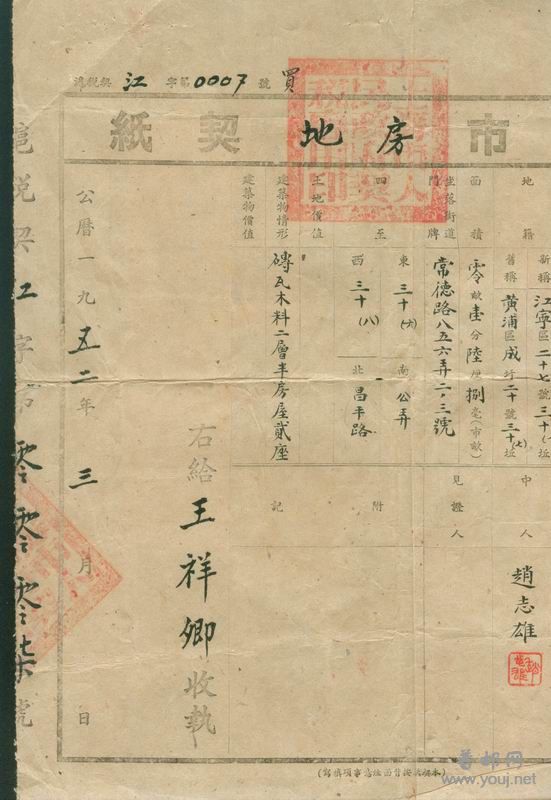 滬稅契 江 字第0007號 買
市房地契紙
地籍
新稱
江寧區二十七號三十(
舊稱
黃浦區成圩二十號三十(七)坵
面積
零畝壹分陸厘捌毫(市畝)
坐落街道門牌
常德路八五六弄二.三號
四至
東 三十(六)
南 公弄
西 三十(八)
北 昌平路
土地價值
建築物情形
磚瓦木料二層半房屋貳座
建築物價值
中人
趙志雄
見證人
附記
右給王祥卿收執
公曆一九五二年三月 日
滬稅契江字第零零零柒號
首邮网
www.youj.net